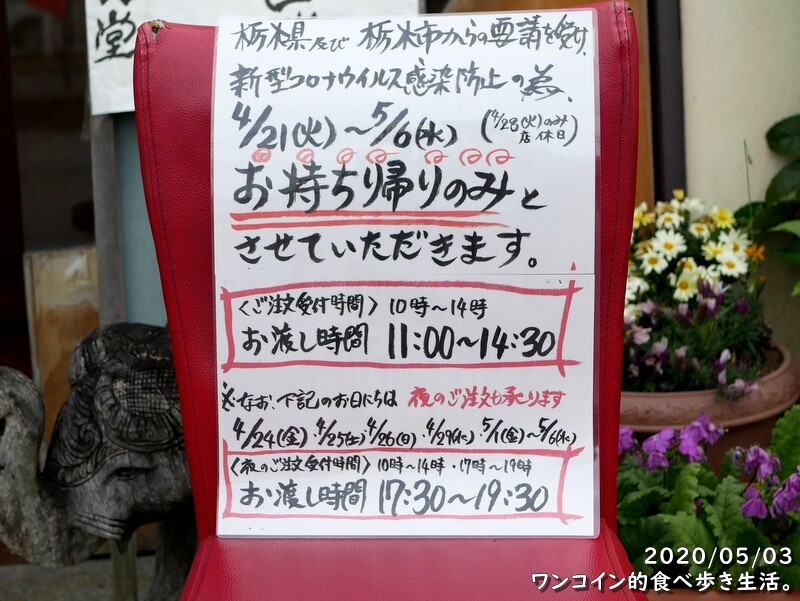 堂
栃木県及び 栃木市からの要請を受け、
新型コロナウイルス感染防止の為、
4/21(火)～5/6(水) (4/28(火)のみ店休日)
お持ち帰りのみと
させていただきます。
〈ご注文受付時間〉 10時～14時
お渡し時間 11:00～14:30
※なお、下記のお日にちは 夜のご注文も承ります
4/24(金)・4/25(土)・4/26(日)・4/29(水)・5/1(金)～5/6(水)
〈夜のご注文受付時間〉 10時～14時・17時～19時
お渡し時間 17:30～19:30
2020/05/03
ワンコイン的食べ歩き生活。